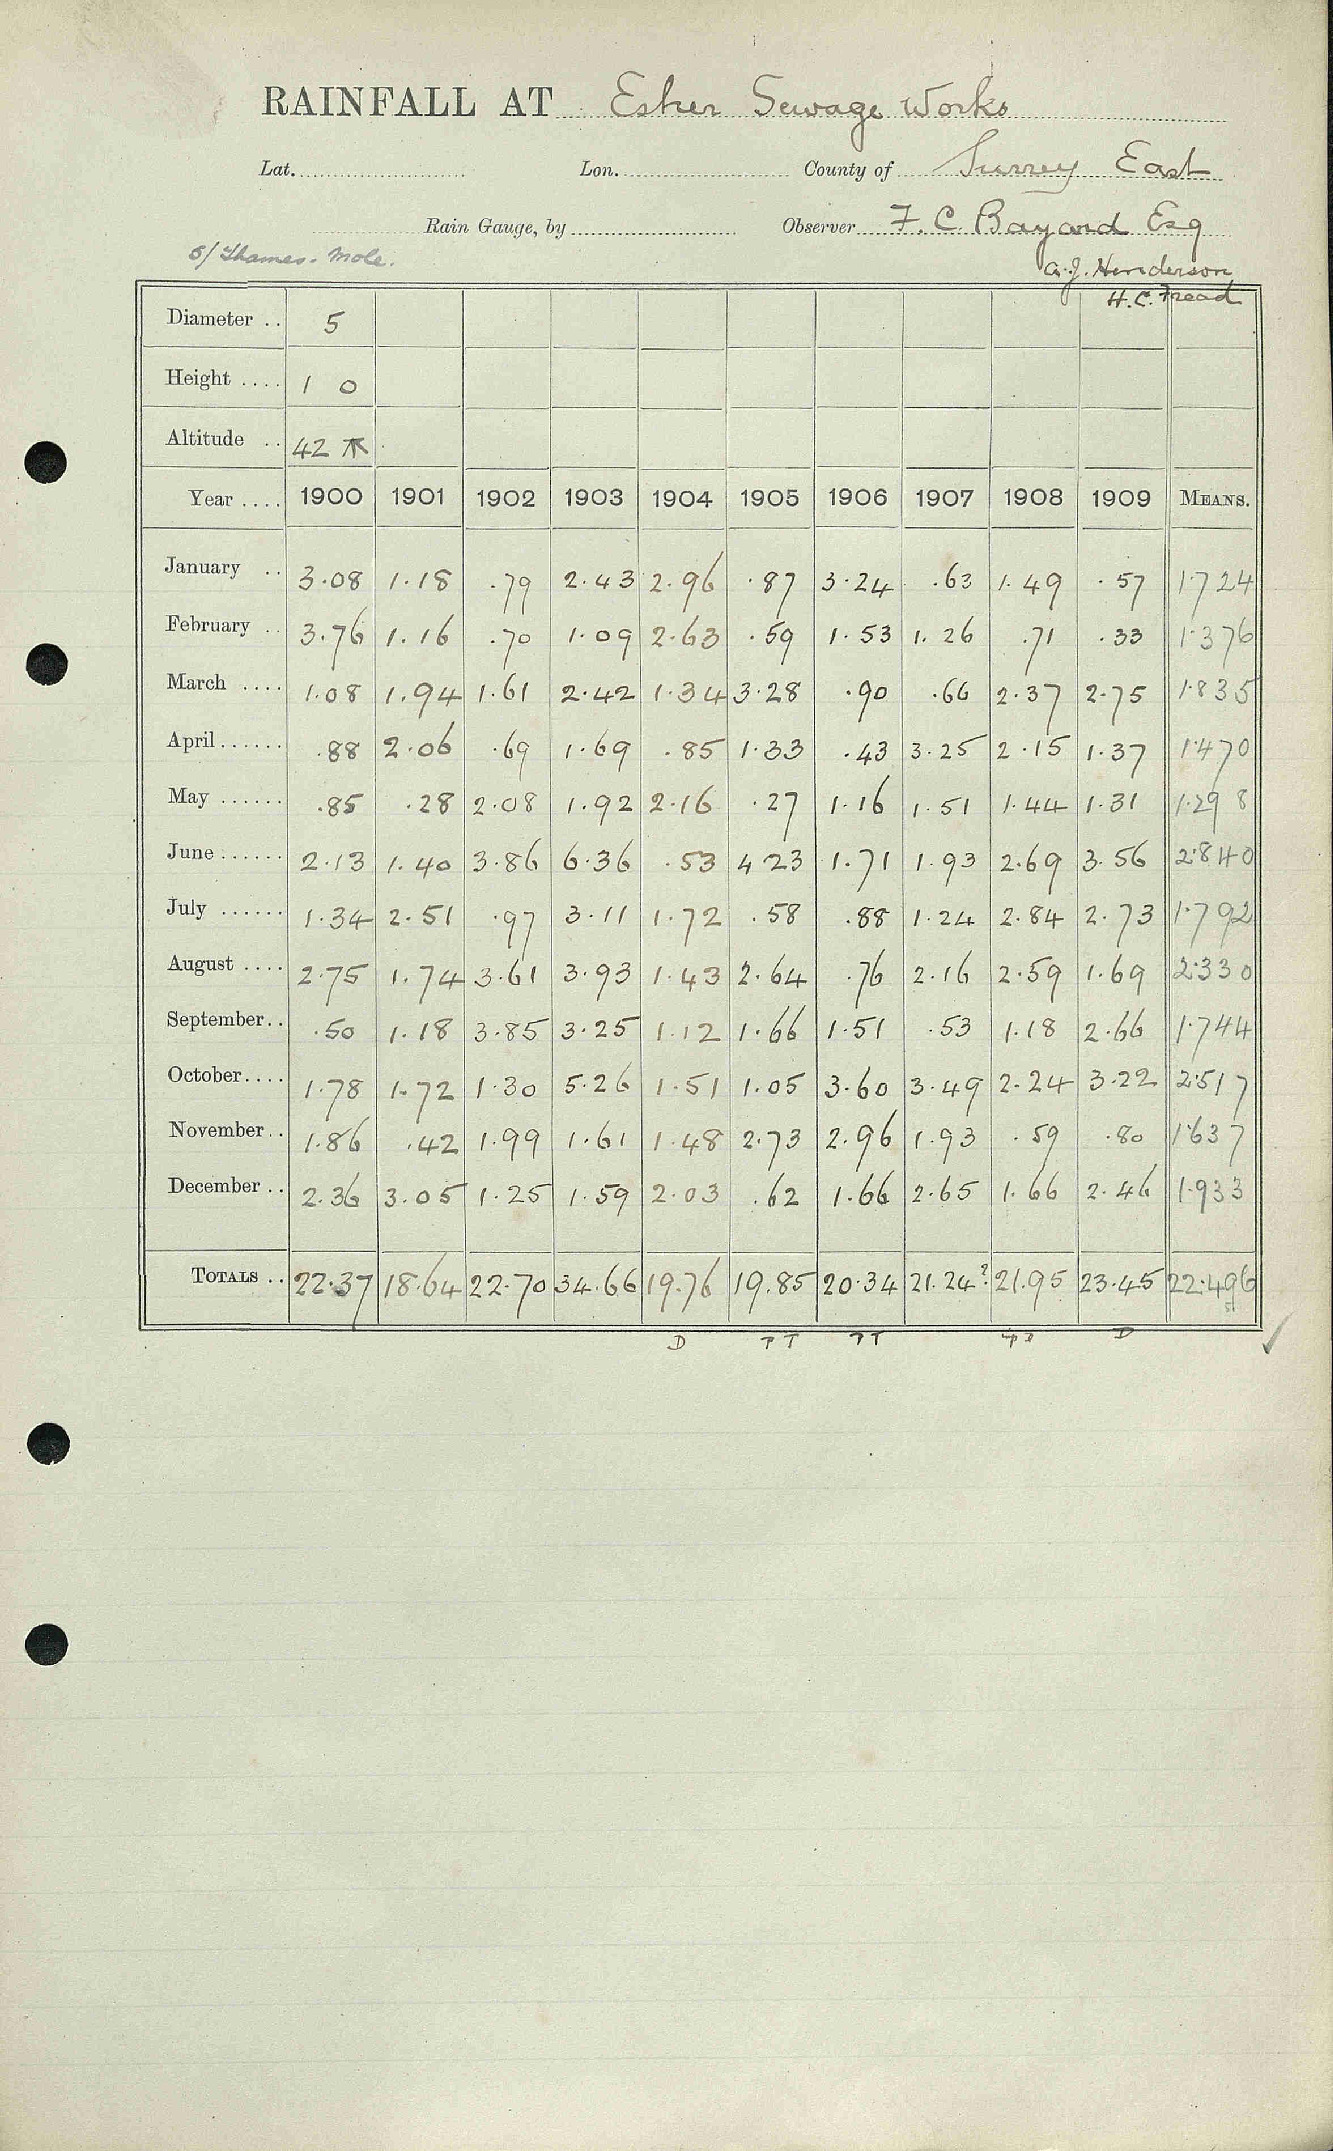 RAINFALL AT Esher Sewage Works
Lat. Lon. County of Surrey East
Rain Gauge, by Observer F. C. Bayard Esq
5/ Thames - Mole. A. J. Henderson
H. C. Fread
Diameter .. 5
Height .... 1 0
Altitude .. 42
Year .... 1900 1901 1902 1903 1904 1905 1906 1907 1908 1909 MEANS.
January .. 3.08 1.18 .79 2.43 2.96 .87 3.24 .63 1.49 .57 1.724
February .. 3.76 1.16 .70 1.09 2.63 .59 1.53 1.26 .71 .33 1.376
March .... 1.08 1.94 1.61 2.42 1.34 3.28 .90 .66 2.37 2.75 1.835
April ...... .88 2.06 .69 1.69 .85 1.33 .43 3.25 2.15 1.37 1.470
May ...... .85 .28 2.08 1.92 2.16 .27 1.16 1.51 1.44 1.31 1.298
June ...... 2.13 1.40 3.86 6.36 .53 4 23 1.71 1.93 2.69 3.56 2.840
July ...... 1.34 2.51 .97 3.11 1.72 .58 .88 1.24 2.84 2.73 1.792
August .... 2.75 1.74 3.61 3.93 1.43 2.64 .76 2.16 2.59 1.69 2.330
September .. .50 1.18 3.85 3.25 1.12 1.66 1.51 .53 1.18 2.66 1.744
October .... 1.78 1.72 1.30 5.26 1.51 1.05 3.60 3.49 2.24 3.22 2.517
November .. 1.86 .42 1.99 1.61 1.48 2.73 2.96 1.93 .59 .80 1.637
December .. 2.36 3.05 1.25 1.59 2.03 .62 1.66 2.65 1.66 2.46 1.933
TOTALS .. 22.37 18.64 22.70 34.66 19.76 19.85 20.34 21.24? 21.95 23.45 22.496
D D